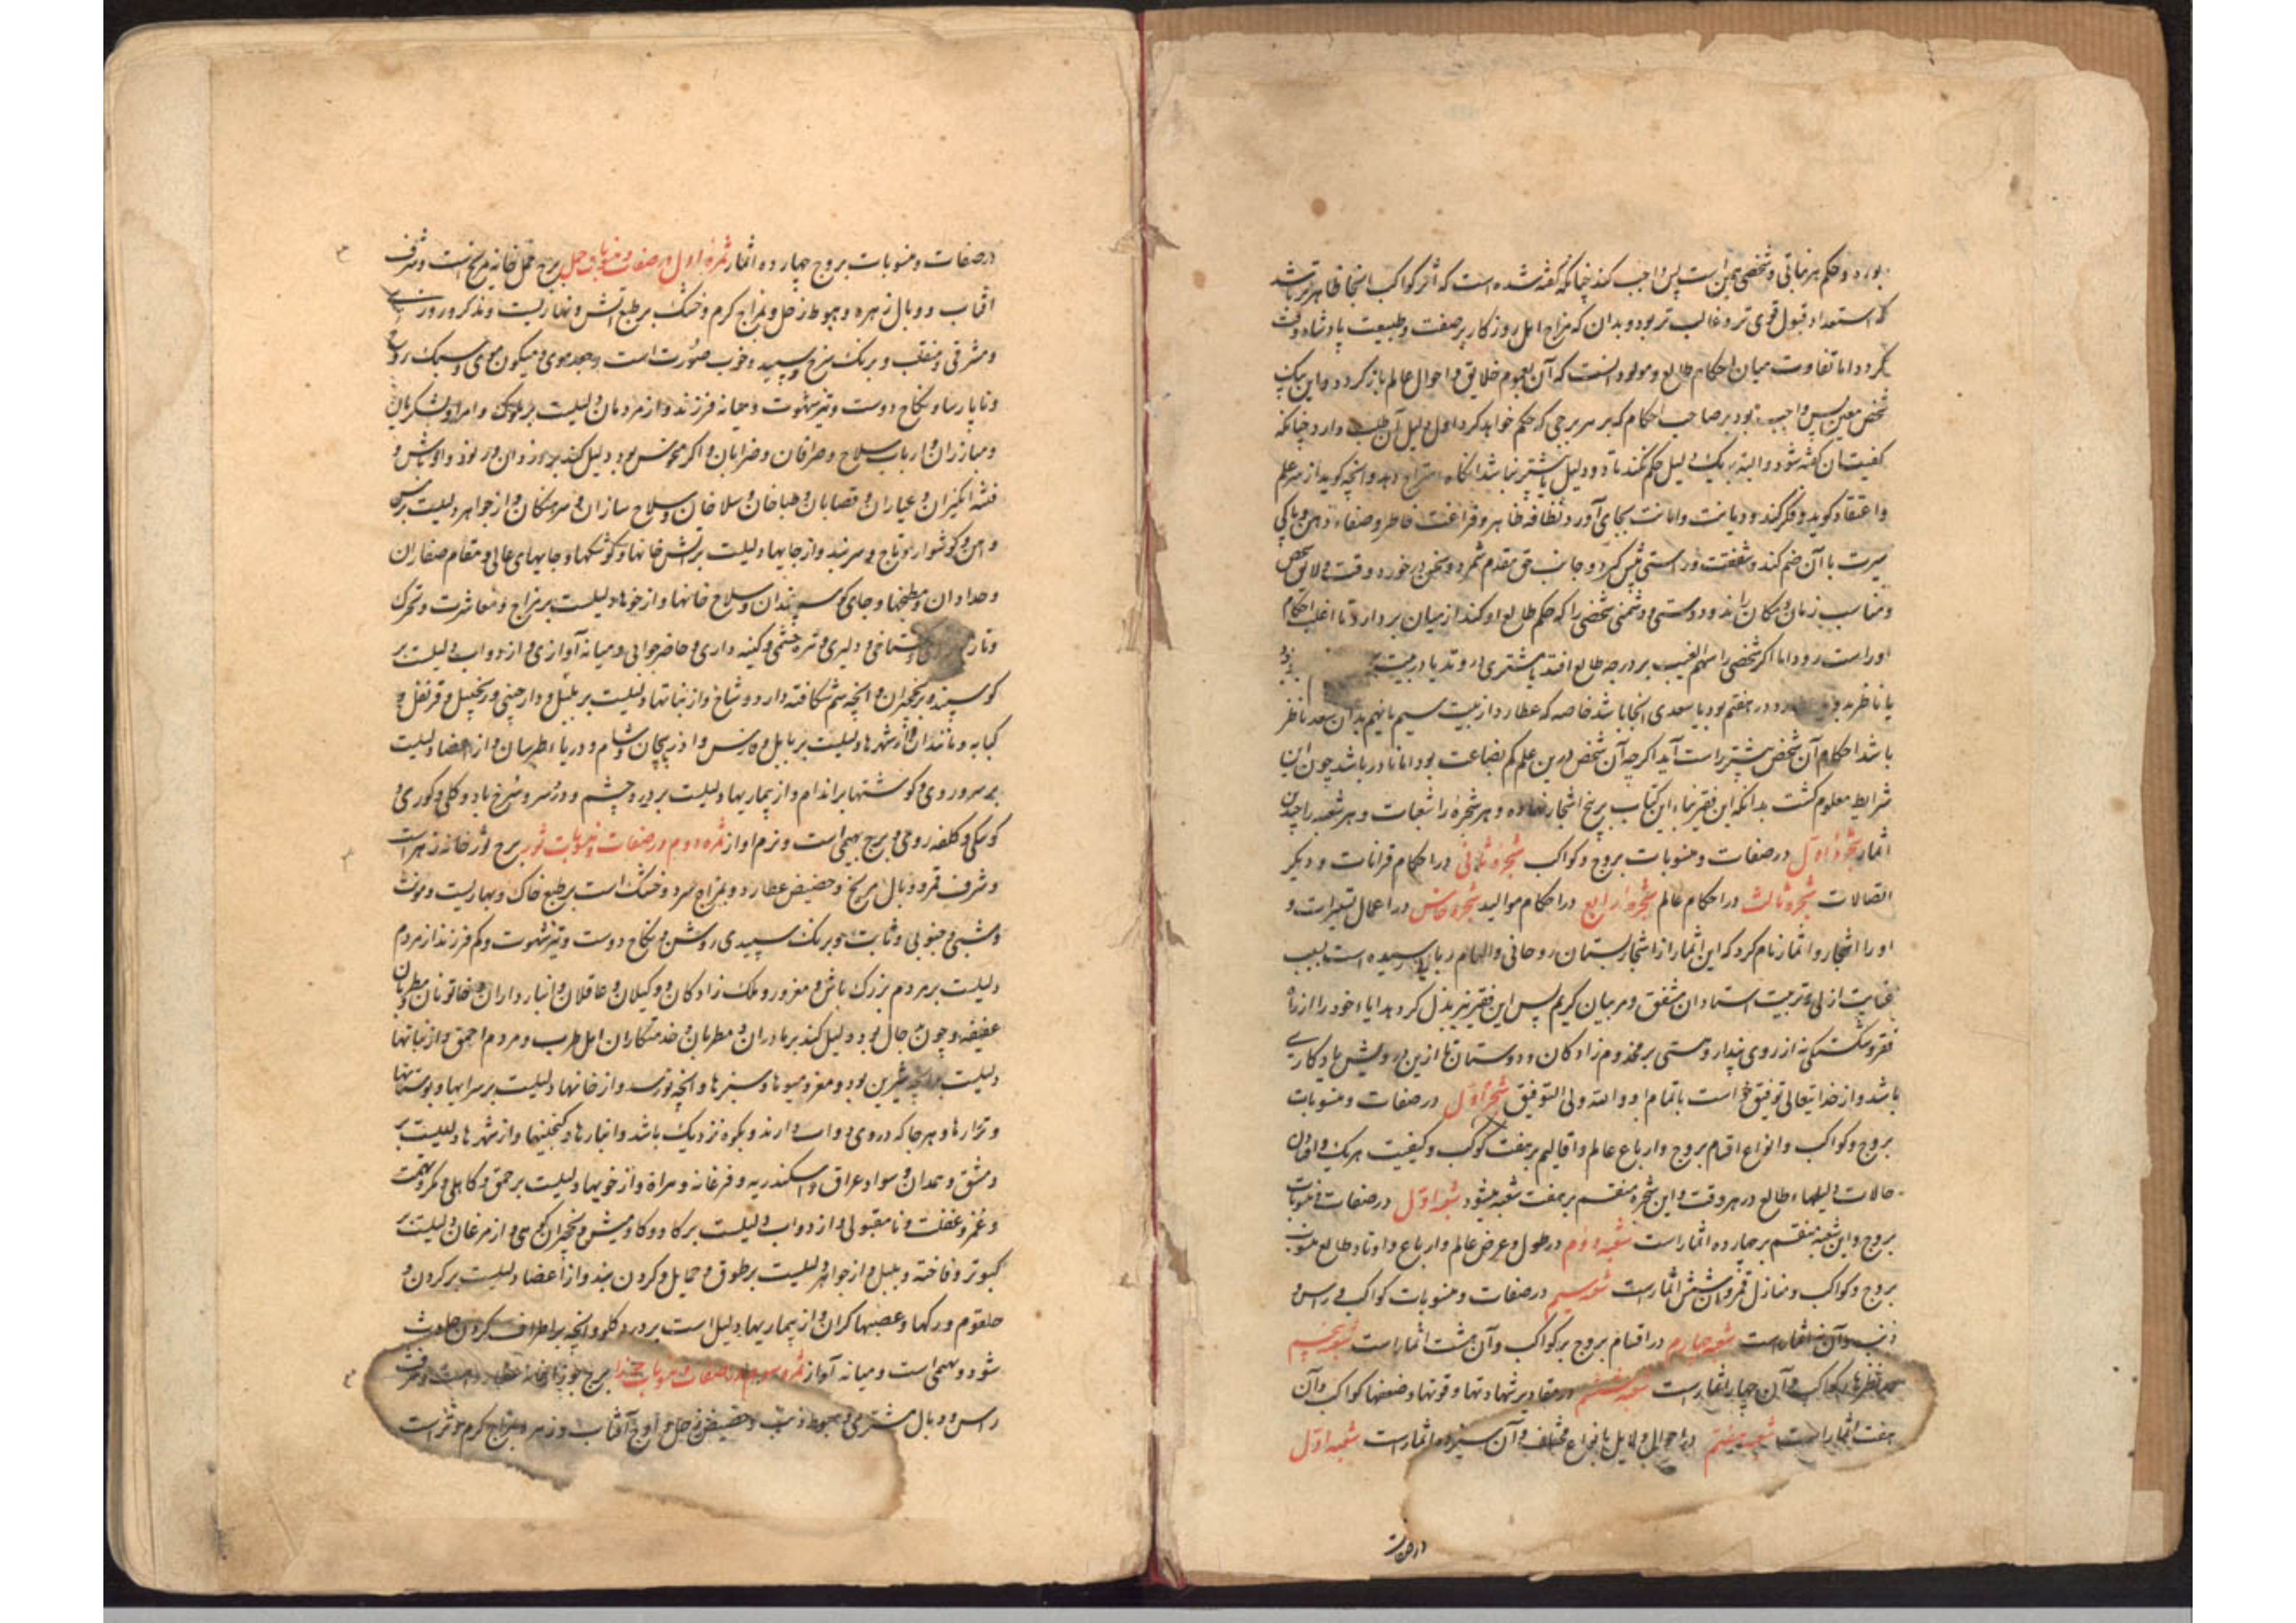 بود و حکم هر نباتی و شخصی همین است پس واجب کند چنانکه گفته شده است که اثر کواکب انجا ظاهرتر باشد
که استعداد قبول قوی تر و غالب تر بود و بدان که مزاج اهل روزکار بر صفت و طبیعت پادشاه وقت
کردد اما تفاوت میان احکام طالع و مولود انست که آن بعموم خلایق و احوال عالم باز کردد و این بیک
شخص معین پس واجب بود بر صاحب احکام که بر هر برجی که حکم خواهد کرد اول دلیل آن طلب دارد چنانکه
کیفیت آن گفته شود و البته بیک دلیل حکم نکند تا دو دلیل یا بیشتر نباشد انکاه امتزاج دهد و انچه کوید از سر علم
و اعتقاد کوید و فکر کند و دیانت و امانت بجای آورد و نظافه ظاهر و فراغت خاطر و صفاء ذهن و پاکی
سیرت با آن ضم کند و شفقت و راستی پیش کیرد و جانب حق مقدم شمرد و سخن در خورد وقت و لایق شخص
و مناسب زمان و مکان راند و دوستی و دشمنی شخصی را که حکم طالع او کند از میان بردارد تا اغلب احکام
او راست رود اما اکر شخصی را سهم الغیب بر درجه طالع افتد یا مشتری در وتد یا در بیت
یا ناظر بدو در هفتم بود یا سعدی انجا باشد خاصه که عطارد از بیت سیم یا نهم بدان سعد ناظر
باشد احکام آن شخص بیشتر راست آید اکر چه آن شخص درین علم کم بضاعت بود اما نادر باشد چون این
شرایط معلوم کشت بدانکه این فقیر بناء این کتاب بر پنج اشجار نهاده و هر شجره را شعبات و هر شعبه را چندین
اثمار شجرهٔ اول در صفات و منسوبات بروج و کواکب شجرهٔ ثانی در احکام قرانات و دیکر
اتصالات شجرهٔ ثالث در احکام عالم شجرهٔ رابع در احکام موالید شجرهٔ خامس در اعمال تسییرات و
او را اشجار و اثمار نام کرد که این اثمار از اشجار بستمان روحانی و الهام ربانی رسیده است بسبب
عنایت ازلی و تربیت استادان مشفق و مربیان کریم پس این فقیر نیز بذل کرد هدایاء خود را از راه
فقر و شکستکی نه از روی پندار و هستی بر مخدوم زادکان و دوستان تا ازین درویش یادکاری
باشد و از خدایتعالی توفیق خواست باتمام او و الله ولی التوفیق شجرهٔ اول در صفات و منسوبات
بروج و کواکب و انواع اقسام بروج و ارباع عالم و اقالیم بر هفت کوکب و کیفیت هر یک و
حالات و دلیلهاء طالع در هر وقت و این شجره منقسم بر هفت شعبه میشود شعبه اول در صفات و منسوبات
بروج و این شعبه منقسم بر چهارده اثمار است شعبه دوم در طول و عرض عالم و ارباع و اوتاد طالع منسوب
بروج و کواکب و منازل قمر و آن شش اثمار است شعبه سیم در صفات و منسوبات کواکب و راس و
ذنب و آن نه اثمار است شعبه چهارم در اقسام بروج بر کواکب و آن هشت اثمار است شعبه پنجم
نظرهاء کواکب و آن چهار اثمار است شعبه ششم در مقادیر شهادتها و قوتها و ضعفها کواکب و آن
هفت اثمار است شعبه هفتم در احوال دلایل بانواع مختلف و آن سیزده اثمار است شعبه اول
در صفات
در صفات و منسوبات بروج چهارده اثمار ثمرهٔ اول در صفات و منسوبات حمل برج حمل خانه مریخ است و شرف
افتاب و وبال زهره و هبوط زحل و بمزاج کرم و خشک بر طبع اتش و نهاریست و مذکر و روز
و مشرقی و منقلب و برنک سرخ و سپید و خوب صورت است و جعد موی و میکون موی و سبک روح
و ناپارسا و نکاح دوست و تیز شهوت و میانه فرزند و از مردمان دلیلست بر ملوک و امرا و لشکریان
و مبارزان و ارباب سلاح و صرافان و ضرابان و اکر منحوس بود دلیل کند بر دزدان و رنود و اوباش و
فتنه انکیزان و عیاران و قصابان و طباخان و سلاخان و سلاح سازان و سرهنکان و از جواهر دلیلست بر مس
و آهن و کوشوار و تاج و سربند و از جایها دلیلست بر آتش خانها و کوشکها و جایهای عالی و مقام صفاران
و حدادان و مطبخها و جای کوسپندان و سلاح خانها و از خوها دلیلست بر مزاح و معاشرت و تحرک
و تازه روی و کستاخی و دلیری و خیره چشمی و کینه داری و حاضر جوابی و میانه آوازی و از دواب دلیلست بر
کوسپند و نخجیران و انچه سم شکافته دارد و شاخ و از نباتها دلیلست بر پلپل و دارچینی و زنجبیل و قرنفل و
کبابه و مانند آن و از شهرها دلیلست بر بابل و فارس و اذربیجان و شام و دریاء طبرستان و از اعضا دلیلست
بر سر و روی و کوشتها بر اندام و از بیماریها دلیلست بر درد چشم و درد سر و سرخ باد و کلی و کوری و
کوبکی و کلفه روی و برج بهیمی است و نرم اواز ثمره دوم در صفات و منسوبات ثور برج ثور خانه زهره است
و شرف قمر و وبال مریخ و حضیض عطارد و بمزاج سرد و خشک است بر طبع خاک و بهاریست و مونث
و شبی و جنوبی و ثابت و برنک سپیدی روشن و نکاح دوست و تیز شهوت و کم فرزند از مردم
دلیلست بر مردم بزرک باش و مغرور و ملک زادکان و وکیلان و عاقلان و انبار داران و خاتونان و مطربان
عفیفه و چون بد حال بود دلیل کند بر مادران و مطربان و خدمتکاران اهل طرب و مردم احمق و از نباتها
دلیلست بر انچه شیرین بود و مغز و میوها و سبزها و انچه بو و از خانها دلیلست بر سرایها و بوستانها
و مزارها و هرجا که در وی دواب دارند و بکوه نزدیک باشد و انبارها و کنجینها و از شهرها دلیلست بر
دمشق و همدان و سواد عراق و اسکندریه و فرغانه و هراة و از خویها دلیلست بر حمق و کاهلی و مکر و تهمت
و غمز و غفلت و نامقبولی و از دواب دلیلست بر کاو و کاومیش و نخجیران کوهی و از مرغان دلیلست بر
کبوتر و فاخته و بلبل و از جواهر دلیلست بر طوق و حمایل و کردن بند و از اعضا دلیلست بر کردن و
حلقوم و رکها و عصبها کران و از بیماریها دلیل است بر درد کلو و انچه بر اطراف کردن حادث
شود و بهیمی است و میانه آواز ثمره سوم در صفات و منسوبات جوزا برج جوزا خانه عطارد است و شرف
راس و وبال مشتری و هبوط ذنب و حضیض زحل و اوج آفتاب و زهره و بمزاج کرم و تر است